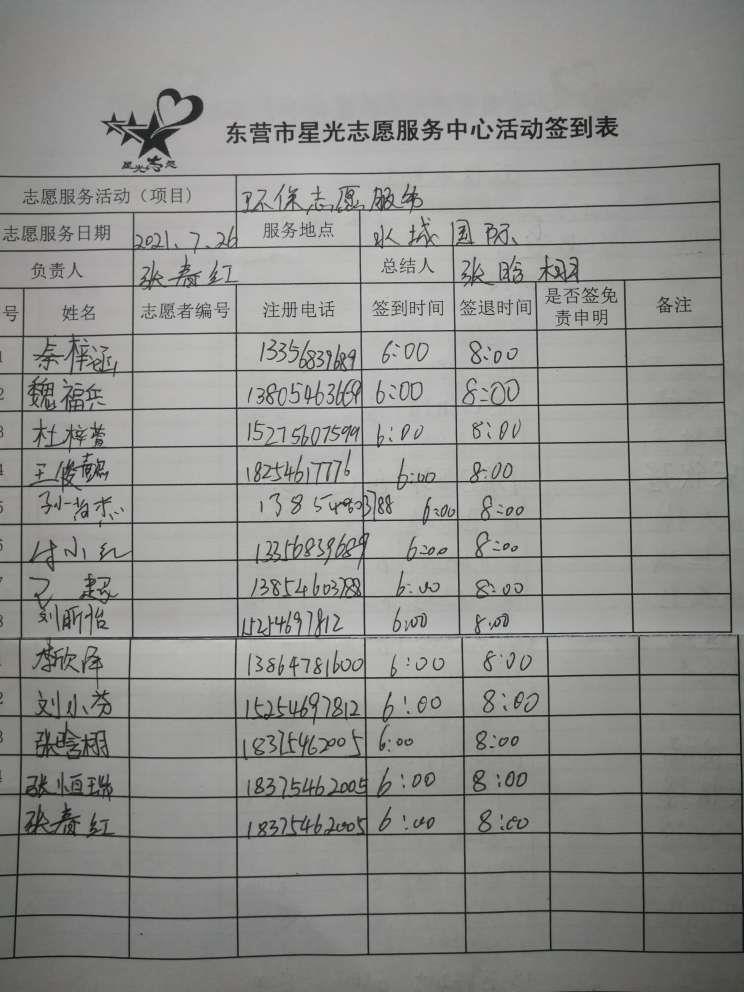 星光志愿
东营市星光志愿服务中心活动签到表
志愿服务活动（项目） 环保志愿服务
志愿服务日期 2021.7.26 服务地点 水城国际
负责人 张春红 总结人 张晗栩
号 姓名 志愿者编号 注册电话 签到时间 签退时间 是否签免责申明 备注
1 秦梓涵 13356839689 6:00 8:00
2 魏福兵 13805463669 6:00 8:00
3 杜梓萱 15275607599 6:00 8:00
4 王俊懿 18254617776 6:00 8:00
5 13854603788 6:00 8:00
6 付小红 13356839689 6:00 8:00
7 超 13854603788 6:00 8:00
8 刘昕怡 15254697812 6:00 8:00
1 李欣泽 13864781600 6:00 8:00
2 刘小芬 15254697812 6:00 8:00
3 张晗栩 18375462005 6:00 8:00
4 张恒瑞 18375462005 6:00 8:00
张春红 18375462005 6:00 8:00